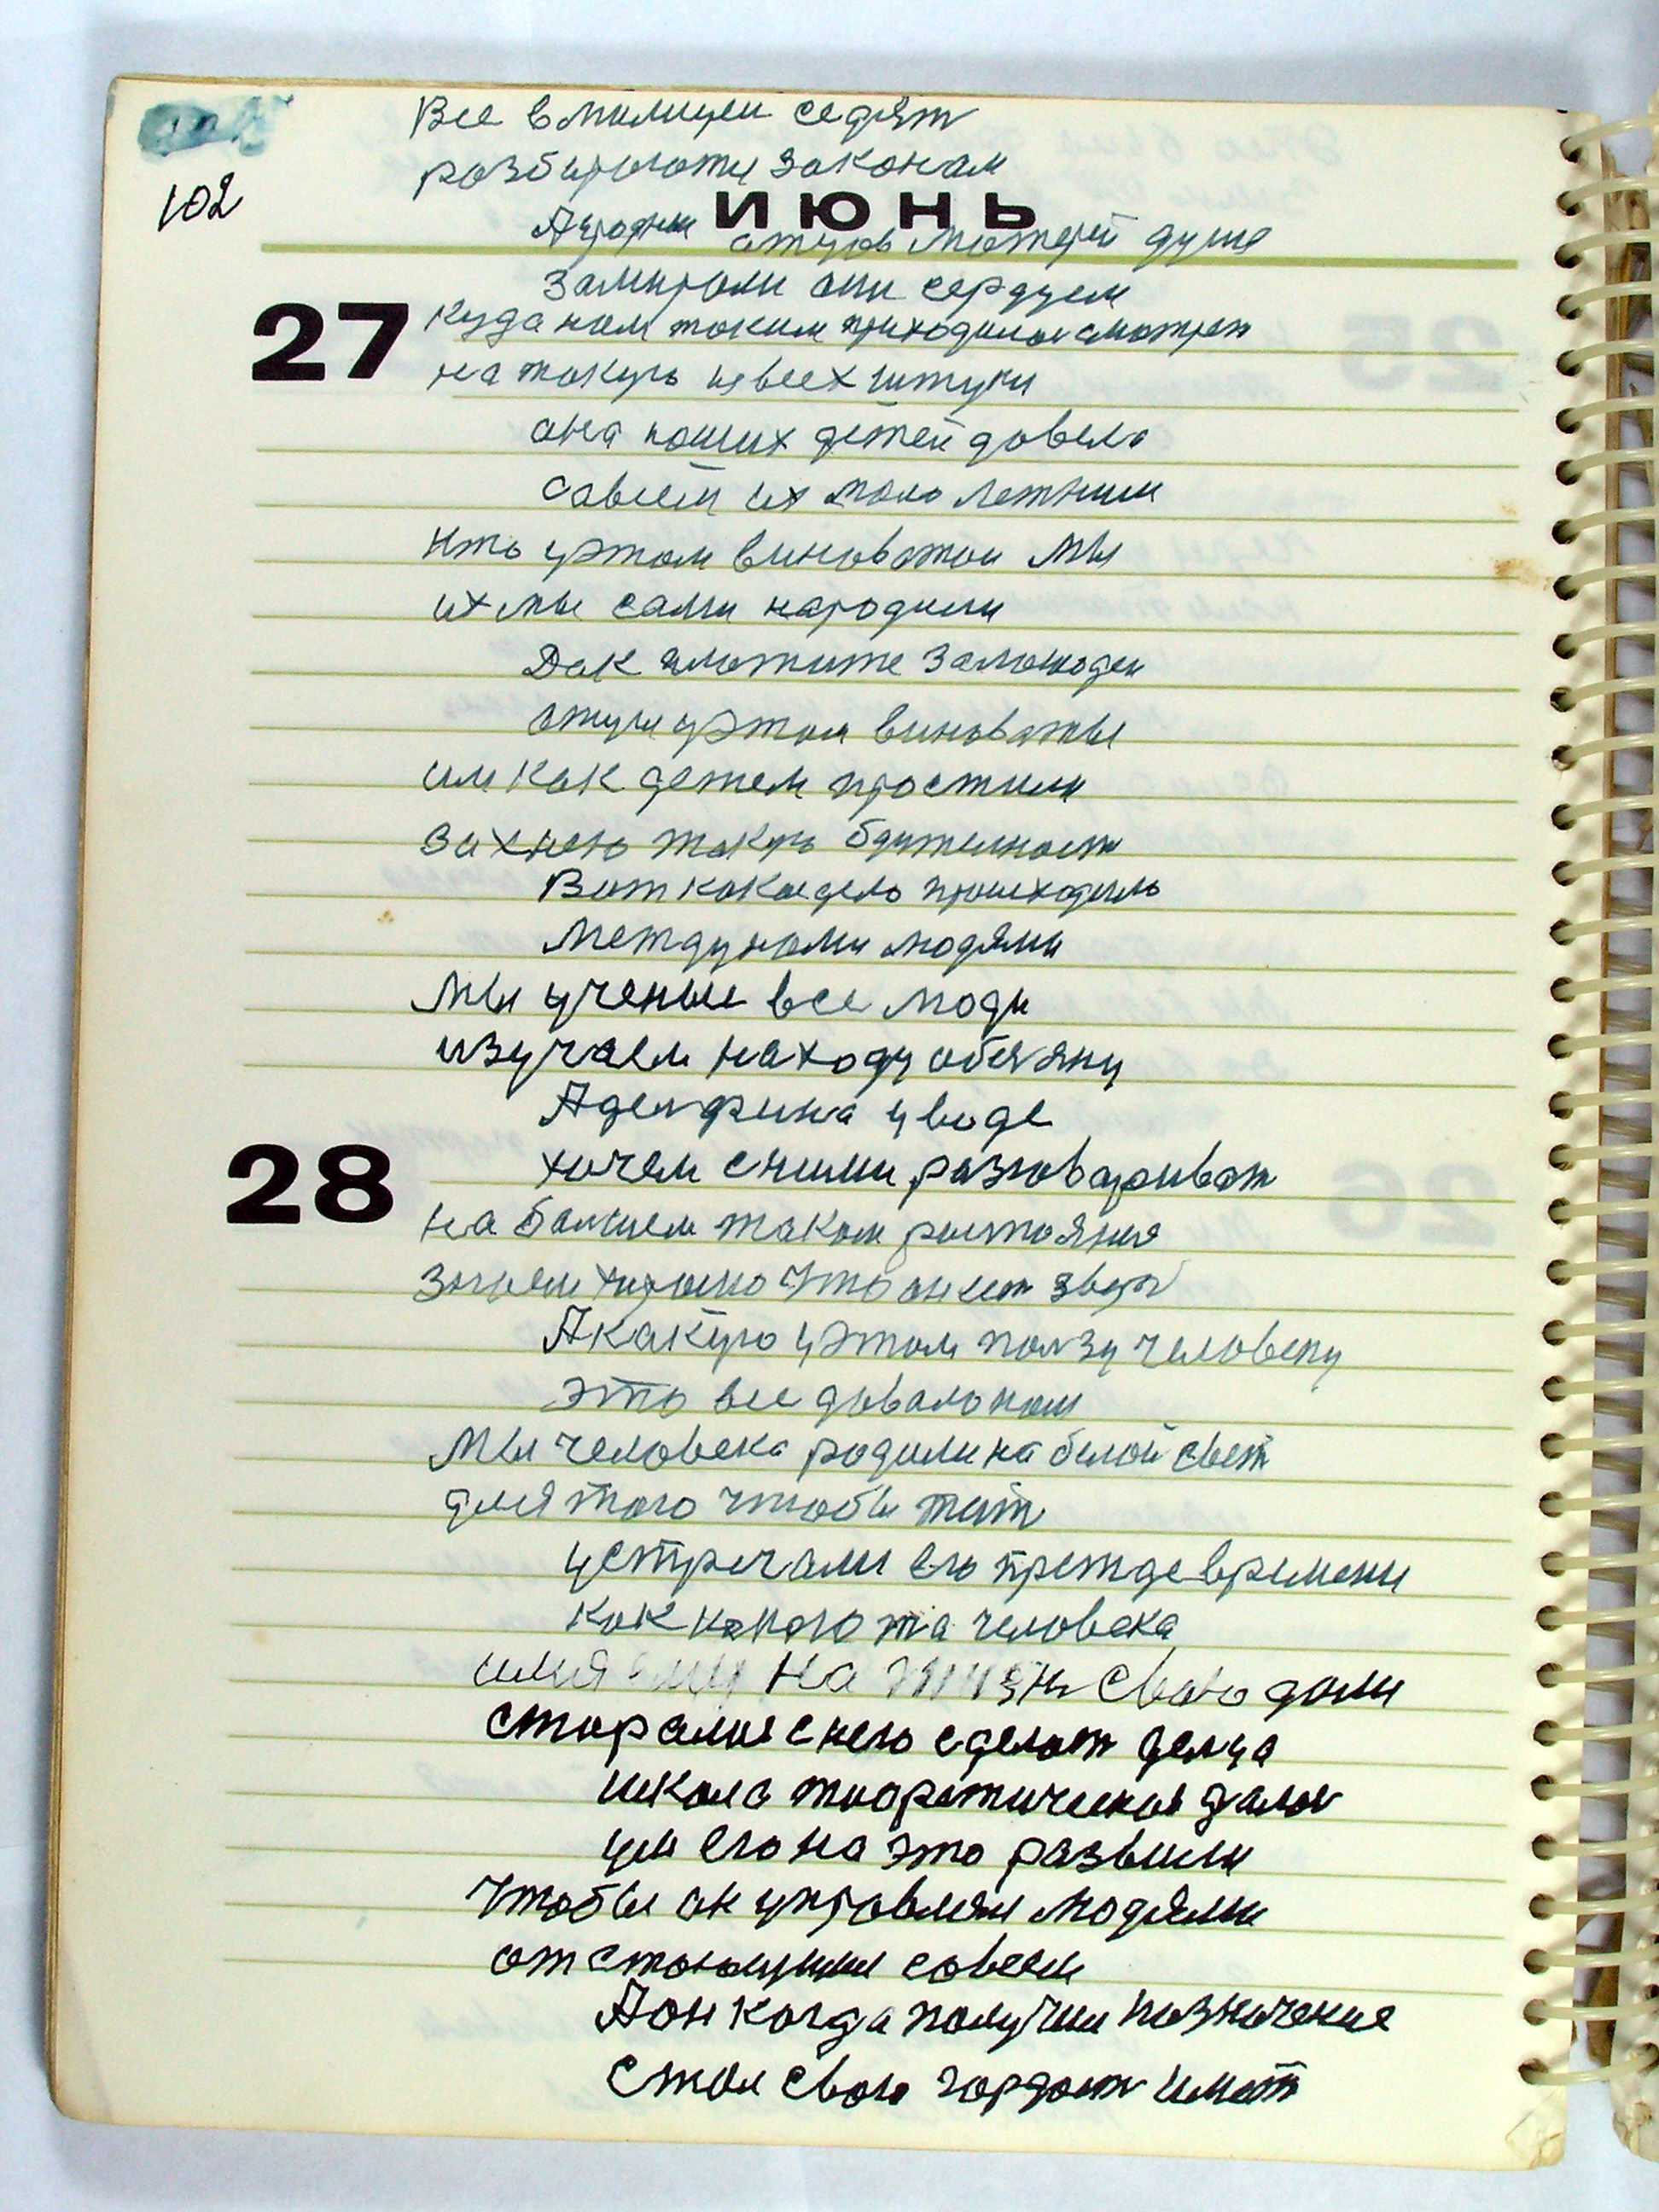 Все в милицеи седят
розбираюти законам
102
ИЮНЬ
Ародных отцов матерей душа
замирали они сердцем
27
Куда нам таким приходилос смотрет
на такую извесх штуки
она наших детей довела
совсем их мало летними
Кто уэтом виноватои мы
их мы сами народили
Дак молодеи
отцы уэтом виноваты
им как детем простили
за такую бдителност
Вот какаедело происходило
междунами людями
Мы ученые все люди
изучаем находу обезяну
Аделфина уводе
хочем сними разговариват
28
на болшем таком ростояния
знаем хорошо что он ест зверь
Акакую уэтом ползу человеку
это все давало нам
Мы человека родили на белой свет
для того чтобы жит
устречали его преждевремени
как какого та человека
имя ему на жизнь свою дали
старалися снего сделат делца
школа тиоретическая далася
ум его на это развили
чтобы он управлял людями
отстоющими совсем
Аон когда получил назначение
стал свою гордост имет